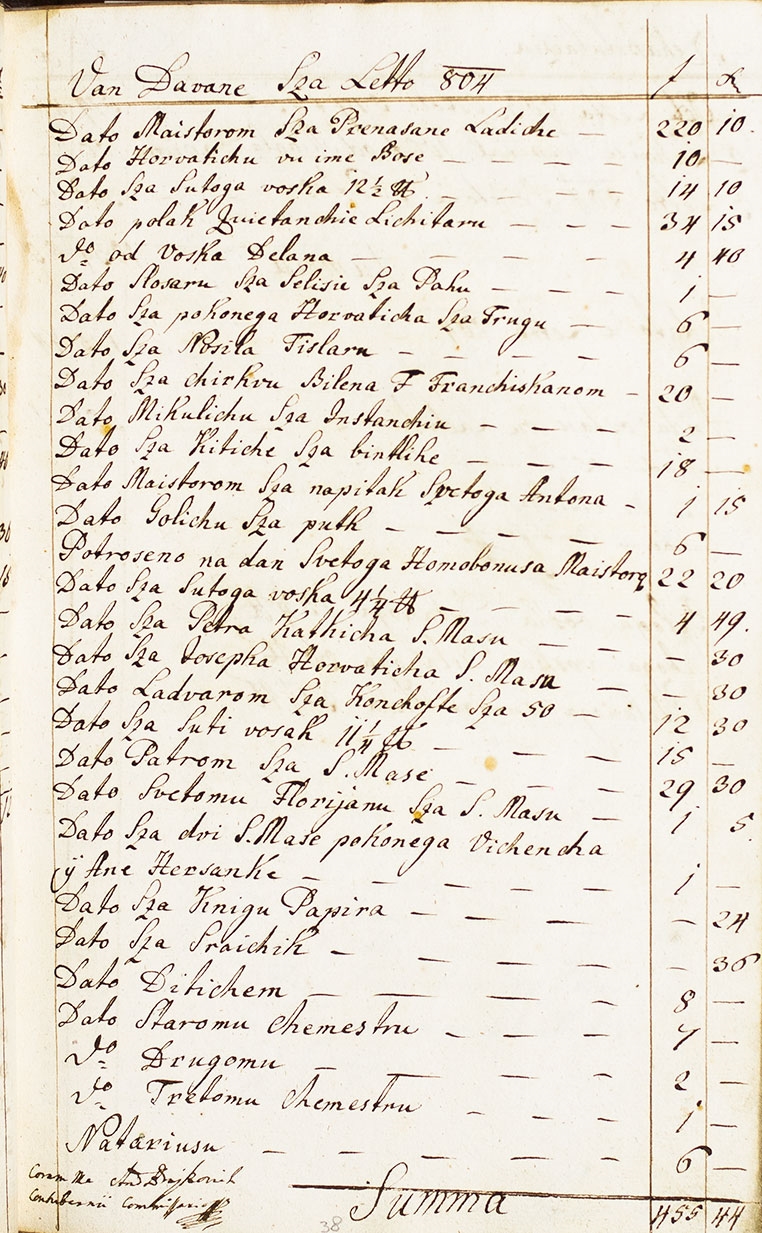 Van Davane Sza Letto 804 f x
Dato Maistorom Sza Prenasane Ladiche — 220 10.
Dato Horvatichu vu ime Bose — — — — 10 —
Dato Sza Sutoga voska 12 1/2 ℔ — — — 14 10
Dato polak Quietanchie Lichitaru — — — 34 15
do od Voska Delana — — — — 4 40
Dato Slosaru Sza Selisie Sza Pahu — — — 1 —
Dato Sza pokonega Horvaticha Sza Trugu — 6 —
Dato Sza Nosila Tislaru — — — — 6 —
Dato Sza chirkvu Bilena F Franchiskanom — 20 —
Dato Mikulichu Sza Instanchiu — — — 2 —
Dato Sza Kitiche Sza bintlihe — — — 18 —
Dato Maistorom Sza napitak Svetoga Antona — 1 15
Dato Golichu Sza puth — — — — 6 —
Potroseno na dan Svetoga Homobonusa Maistorq 22 20
Dato Sza Sutoga voska 4 1/4 ℔ — — — 4 49.
Dato Sza Petra Katkicha S. Masu — — — — 30
Dato Sza Josepha Horvaticha S. Masu — — 30
Dato Ladvarom Sza Konchofte Sza 50 — 12 30
Dato Sza Suti vosak 11 1/4 ℔ — — — 15 —
Dato Patrom Sza S. Mase — — — 29 30
Dato Svetomu Florijanu Sza S. Masu — 1 5
Dato Sza dvi S. Mase pokonega Vichencha
ÿ Ane Hersanke — — — — — 1 —
Dato Sza Knigu Papira — — — — 24
Dato Sza Sraichik — — — — — 36
Dato Ditichem — — — — 8 —
Dato Staromu Chemestru — — — 7 —
do Drugomu — — — — 2 —
do Tretomu Chemestru — — — 1 —
Natariusu — — — — — 6 —
Coram Me
Contubernii Commissario
Summa 455 44
38